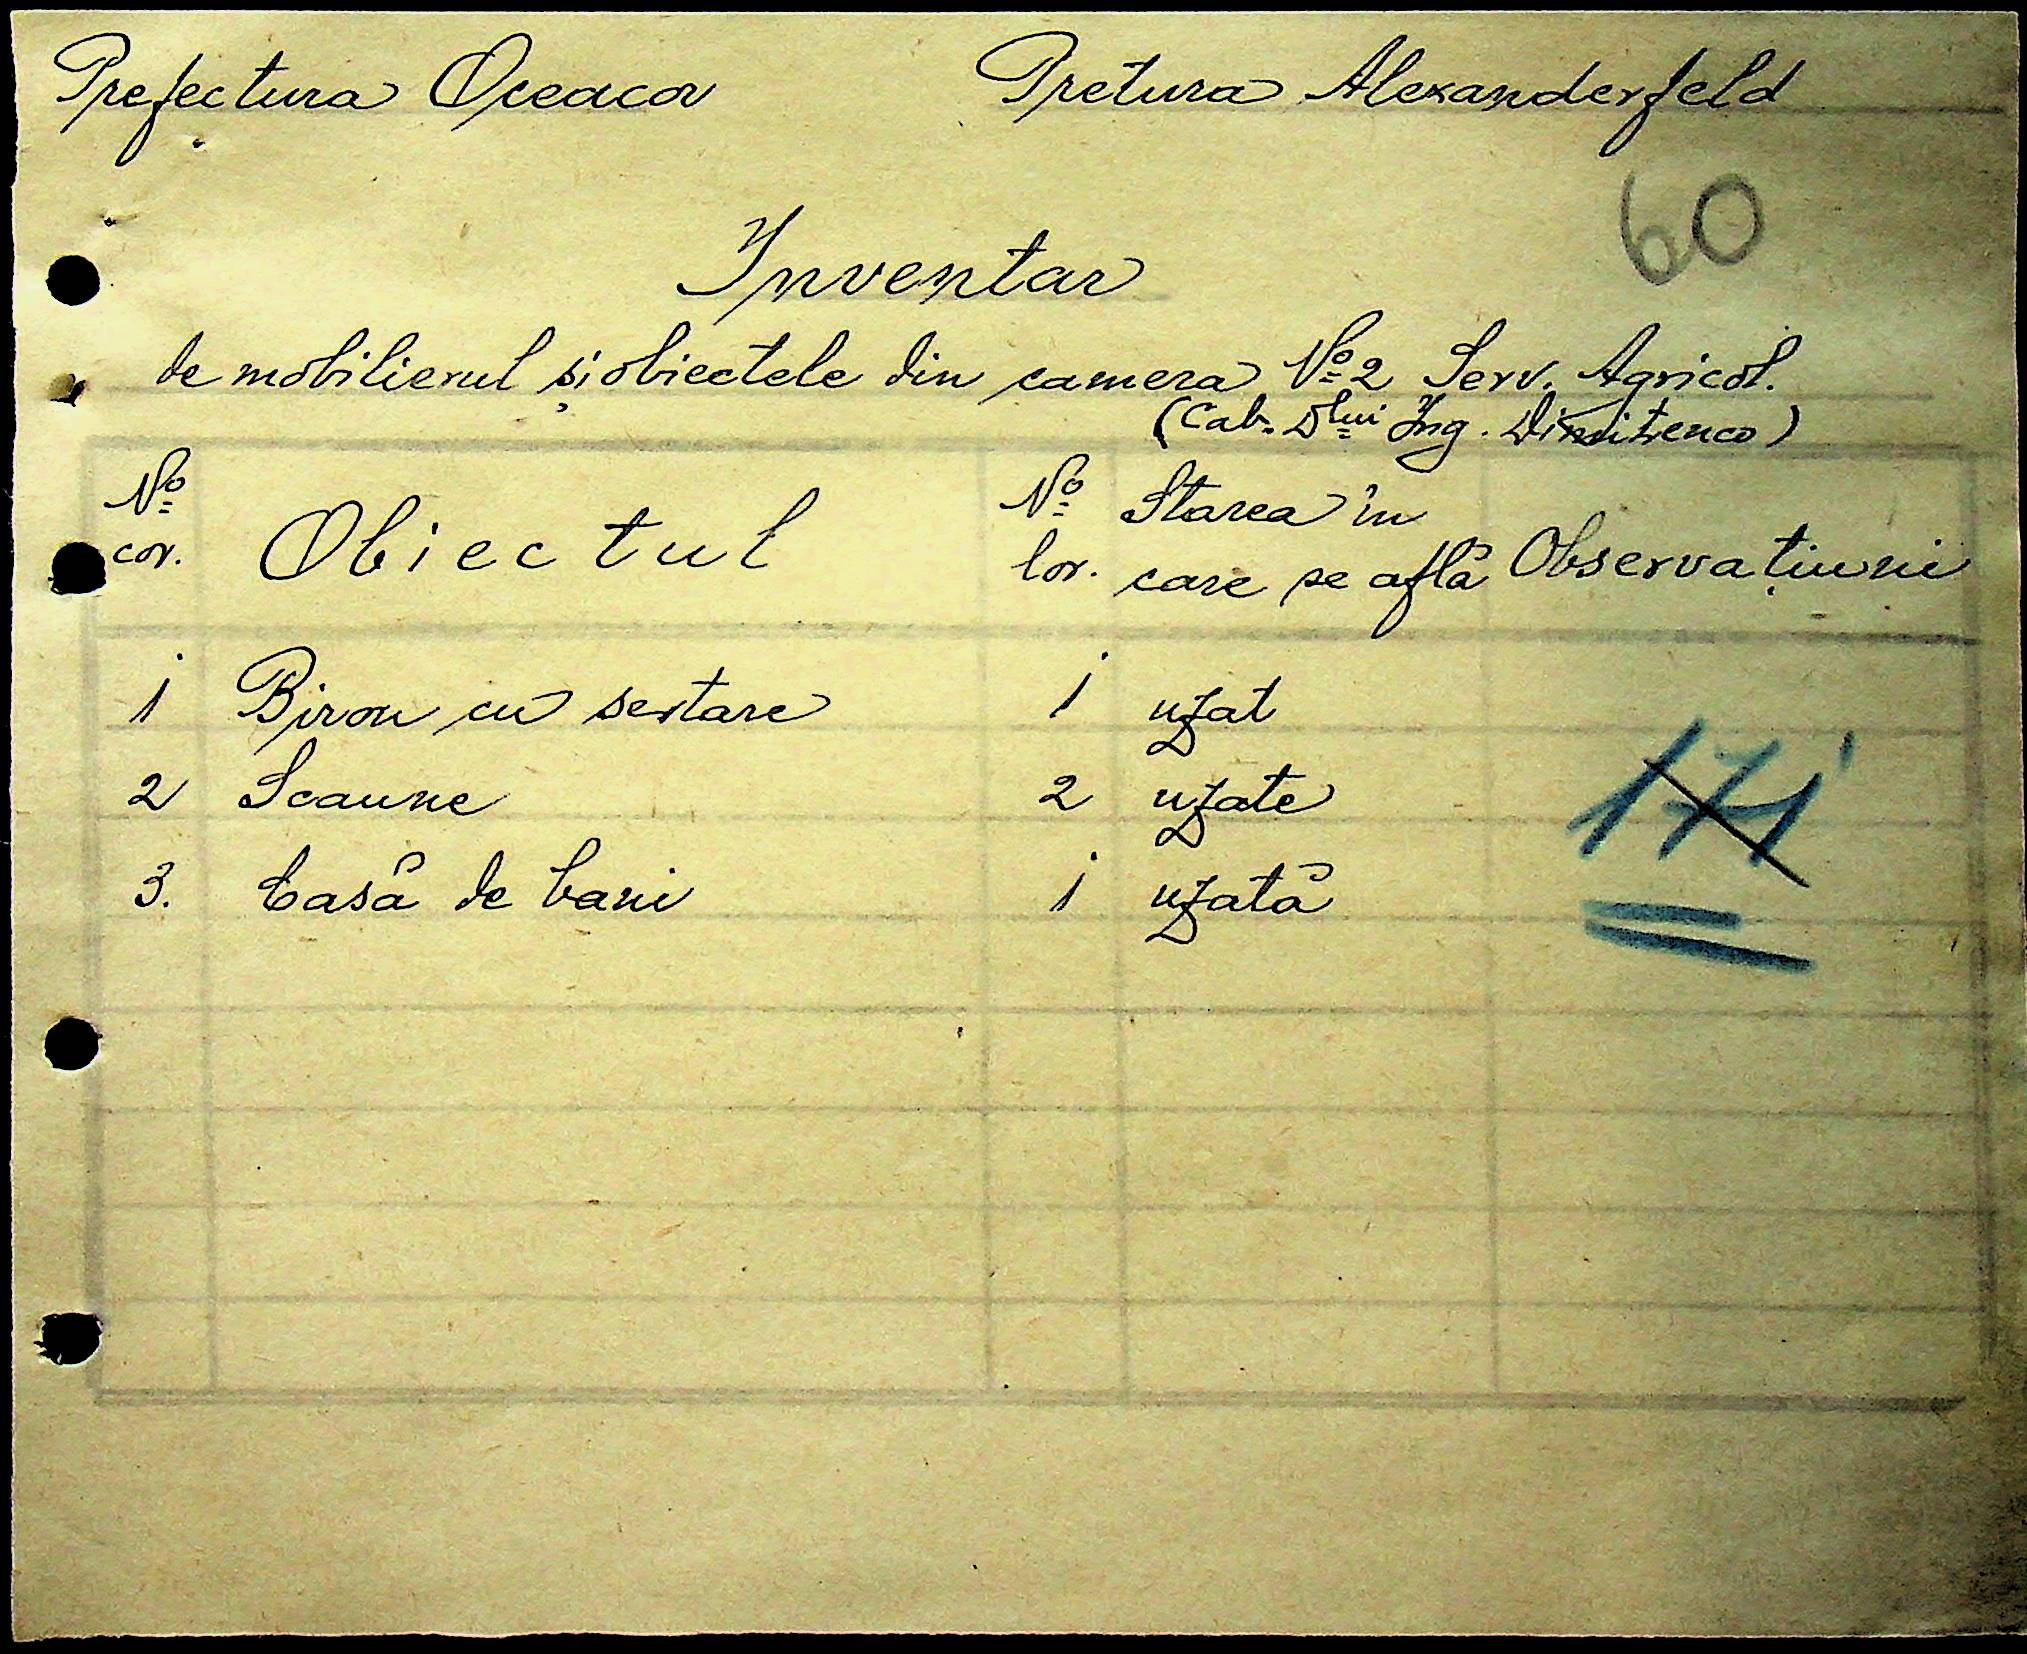 Prefectura Oceacov Pretura Alexanderfeld
60
Inventar
de mobilierul și obiectele din camera No 2 Serv. Agricol.
(Cab. Dlui Ing. Dimitrenco)
No cor. Obiectul No lor. Starea în care se află Observațiuni
1 Birou cu sertare 1 uzat
2 Scaune 2 uzate
3. Casă de bani 1 uzată
171